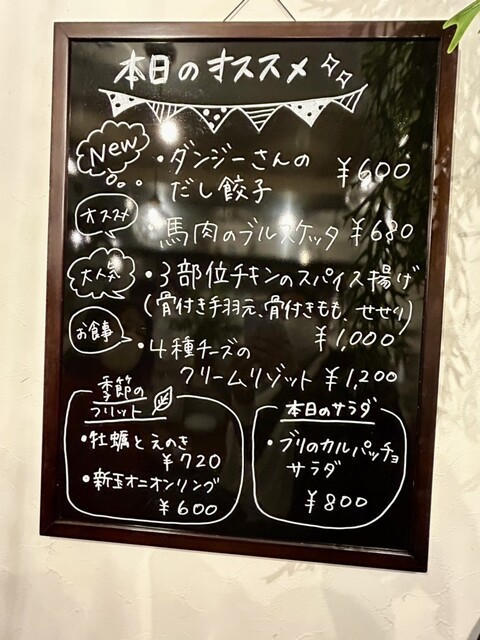 本日のオススメ
New
・ダンジーさんの
だし餃子 ¥600
オススメ
・馬肉のブルスケッタ ¥680
大人気
・3部位チキンのスパイス揚げ
(骨付き手羽元、骨付きもも、せせり)
¥1,000
お食事
・4種チーズの
クリームリゾット ¥1,200
季節の
フリット
・牡蠣とえのき
¥720
・新玉オニオンリング
¥600
本日のサラダ
・ブリのカルパッチョ
サラダ
¥800